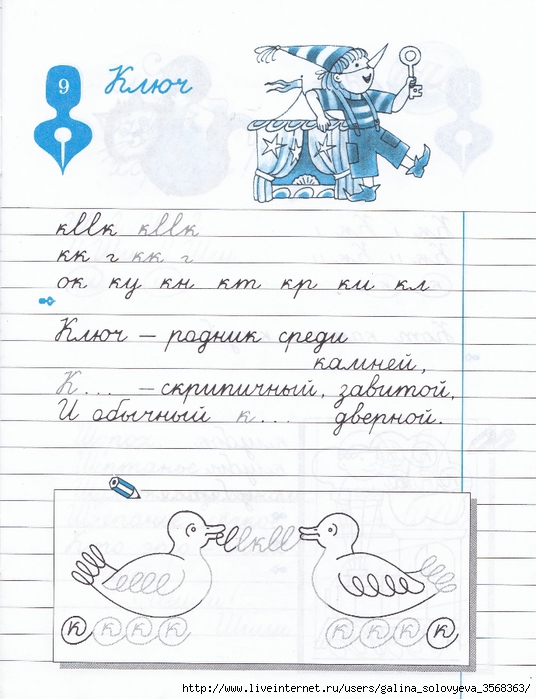 9 Ключ
кllк кllк
кк г кк г
ок ку кн кт кр ки кл
Ключ – родник среди
камней,
К... – скрипичный, завитой,
И обычный к... дверной.
llкll
К К К К К К К К
http://www.liveinternet.ru/users/galina_solovyeva_3568363/